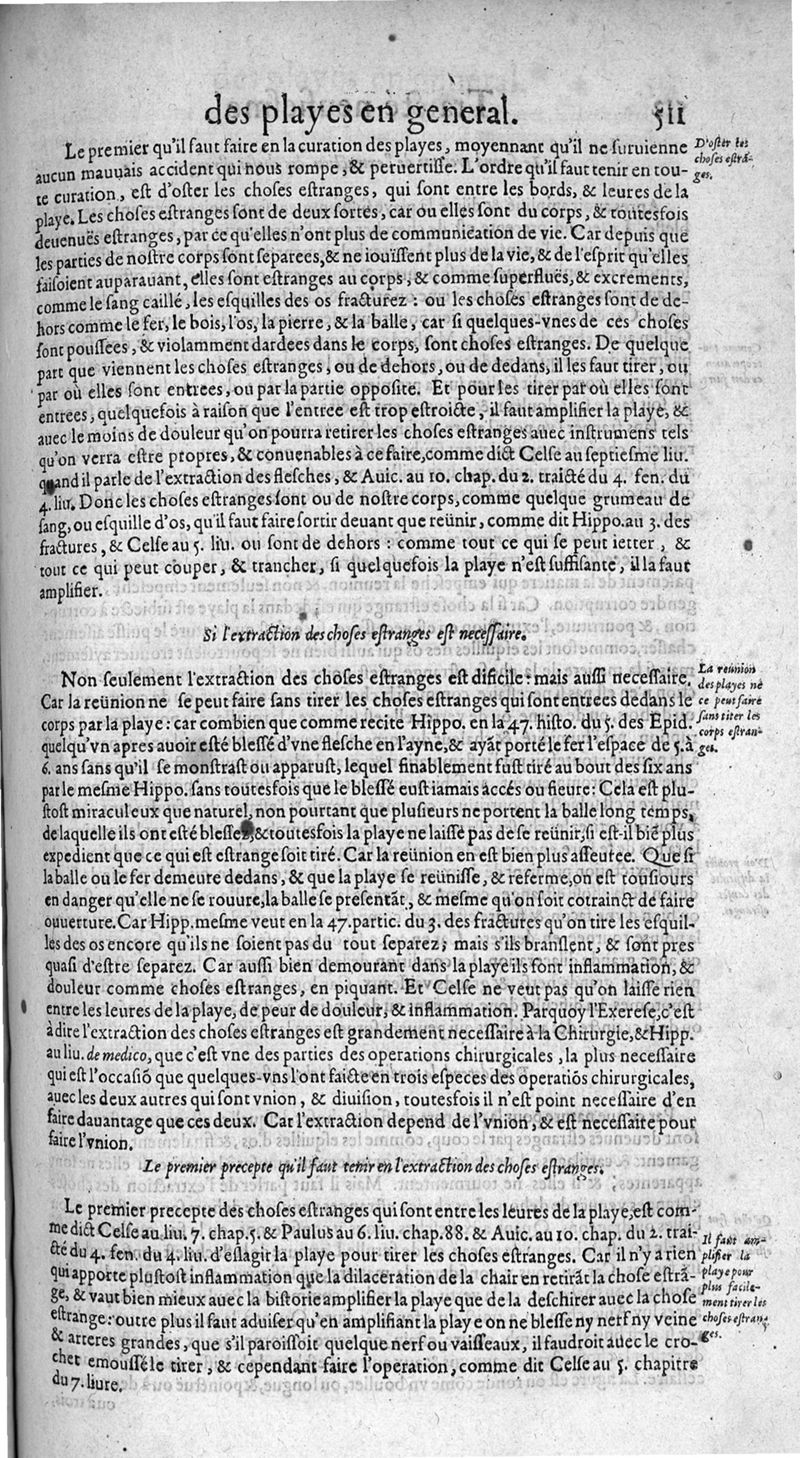 des playes en general. 511
Le premier qu'il faut faire en la curation des playes, moyennant qu'il ne suruienne
aucun mauuais accident qui nous rompe, & peruertisse. L'ordre qu'il faut tenir en tou-
te curation, est d'oster les choses estranges, qui sont entre les bords, & leures de la
playe. Les choses estranges sont de deux sortes, car ou elles sont du corps, & toutesfois
deuenuës estranges, par ce qu'elles n'ont plus de communication de vie. Car depuis que
les parties de nostre corps sont separees, & ne iouïssent plus de la vie, & de l'esprit qu'elles
faisoient auparauant, elles sont estranges au corps, & comme superfluës, & excrements,
comme le sang caillé, les esquilles des os fracturez : ou les choses estranges sont de de-
hors comme le fer, le bois, l'os, la pierre, & la balle, car si quelques-vnes de ces choses
sont poussees, & violamment dardees dans le corps, sont choses estranges. De quelque
part que viennent les choses estranges, ou de dehors, ou de dedans, il les faut tirer, ou
par où elles sont entrees, ou par la partie opposite. Et pour les tirer par où elles sont
entrees, quelquefois à raison que l'entree est trop estroicte, il faut amplifier la playe, &
auec le moins de douleur qu'on pourra retirer les choses estranges auec instrumens tels
qu'on verra estre propres, & conuenables à ce faire, comme dict Celse au septiesme liu.
quand il parle de l'extraction des flesches, & Auic. au 10. chap. du 2. traicté du 4. fen. du
4. liu. Donc les choses estranges sont ou de nostre corps, comme quelque grumeau de
sang, ou esquille d'os, qu'il faut faire sortir deuant que reünir, comme dit Hippo. au 3. des
fractures, & Celse au 5. liu. ou sont de dehors : comme tout ce qui se peut ietter, &
tout ce qui peut couper, & trancher, si quelquefois la playe n'est suffisante, il la faut
amplifier.
D'oster les
choses estrã-
ges.
Si l'extraction des choses estranges est necessaire.
Non seulement l'extraction des choses estranges est dificile : mais aussi necessaire.
Car la reünion ne se peut faire sans tirer les choses estranges qui sont entrees dedans le
corps par la playe : car combien que comme recite Hippo. en la 47. histo. du 5. des Epid.
quelqu'vn apres auoir esté blessé d'vne flesche en l'ayne, & ayãt porté le fer l'espace de 5. à
6. ans sans qu'il se monstrast ou apparust, lequel finablement fust tiré au bout des six ans
par le mesme Hippo. sans toutesfois que le blessé eust iamais accés ou fieure : Cela est plu-
stost miraculeux que naturel, non pourtant que plusieurs ne portent la balle long temps,
de laquelle ils ont esté blessez, & toutesfois la playe ne laisse pas de se reünir, si est-il biẽ plus
expedient que ce qui est estrange soit tiré. Car la reünion en est bien plus asseuree. Que si
la balle ou le fer demeure dedans, & que la playe se reünisse, & referme, on est tousiours
en danger qu'elle ne se rouure, la balle se presentãt, & mesme qu'on soit cotrainct de faire
ouuerture. Car Hipp. mesme veut en la 47. partic. du 3. des fractures qu'on tire les esquil-
les des os encore qu'ils ne soient pas du tout separez ; mais s'ils branslent, & sont pres
quasi d'estre separez. Car aussi bien demourant dans la playe ils font inflammation, &
douleur comme choses estranges, en piquant. Et Celse ne veut pas qu'on laisse rien
entre les leures de la playe, de peur de douleur, & inflammation. Parquoy l'Exerese, c'est
à dire l'extraction des choses estranges est grandement necessaire à la Chirurgie, & Hipp.
au liu. de medico, que c'est vne des parties des operations chirurgicales, la plus necessaire
qui est l'occasiõ que quelques-vns l'ont faicte en trois especes des operatiõs chirurgicales,
auec les deux autres qui sont vnion, & diuision, toutesfois il n'est point necessaire d'en
faire dauantage que ces deux. Car l'extraction depend de l'vnion, & est necessaite pour
faire l'vnion.
La reünion
des playes ne
ce peut faire
sans titer les
corps estran-
ges.
Le premier precepte qu'il faut tenir en l'extraction des choses estranges.
Le premier precepte des choses estranges qui sont entre les leures de la playe, est com-
me dict Celse au liu. 7. chap. 5. & Paulus au 6. liu. chap. 88. & Auic. au 10. chap. du 2. trai-
cté du 4. fen. du 4. liu. d'eslagir la playe pour tirer les choses estranges. Car il n'y a rien
qui apporte plustost inflammation que la dilaceration de la chair en retirãt la chose estrã-
ge, & vaut bien mieux auec la bistorie amplifier la playe que de la deschirer auec la chose
estrange : outre plus il faut aduiser qu'en amplifiant la playe on ne blesse ny nerf ny veine
& arteres grandes, que s'il paroissoit quelque nerf ou vaisseaux, il faudroit auec le cro-
chet emoussé le tirer, & cependant faire l'operation, comme dit Celse au 5. chapitre
du 7. liure.
Il faut am-
plifier la
playe pour
plus facile-
ment tirer les
choses estran-
ges.